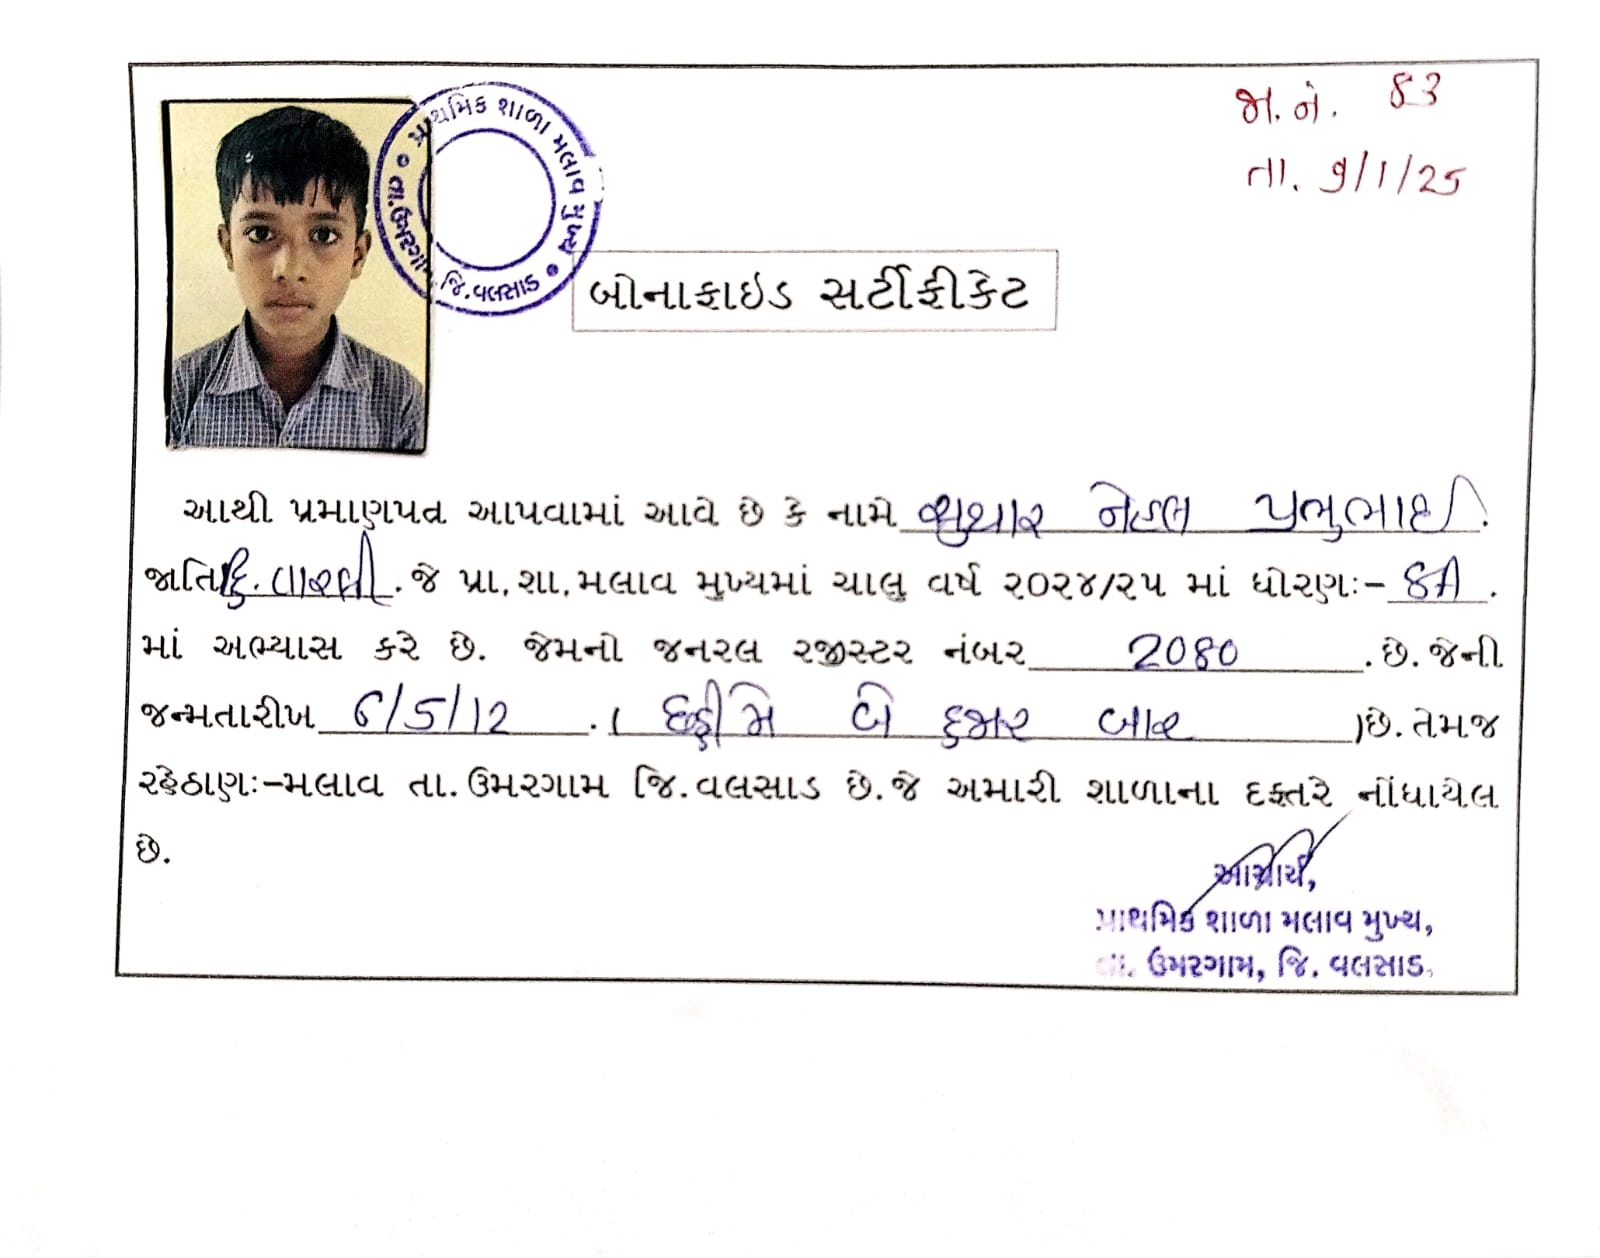 જા.નં. 83
તા. 9/1/25
પ્રાથમિક શાળા મલાવ મુખ્ય • જિ.વલસાડ • તા.ઉમરગામ
બોનાફાઇડ સર્ટીફીકેટ
આથી પ્રમાણપત્ર આપવામાં આવે છે કે નામે સુથાર પ્રભુભાઈ.
જાતિ હિ. વારલી. જે પ્રા.શા.મલાવ મુખ્યમાં ચાલુ વર્ષ ૨૦૨૪/૨૫ માં ધોરણઃ- 8A.
માં અભ્યાસ કરે છે. જેમનો જનરલ રજીસ્ટર નંબર 2080 .છે.જેની
જન્મતારીખ 6/5/12 .( છઠ્ઠી મે બે હજાર બાર )છે.તેમજ
રહેઠાણઃ-મલાવ તા.ઉમરગામ જિ.વલસાડ છે.જે અમારી શાળાના દફતરે નોંધાયેલ
છે.
આચાર્ય,
પ્રાથમિક શાળા મલાવ મુખ્ય,
તા. ઉમરગામ, જિ. વલસાડ.